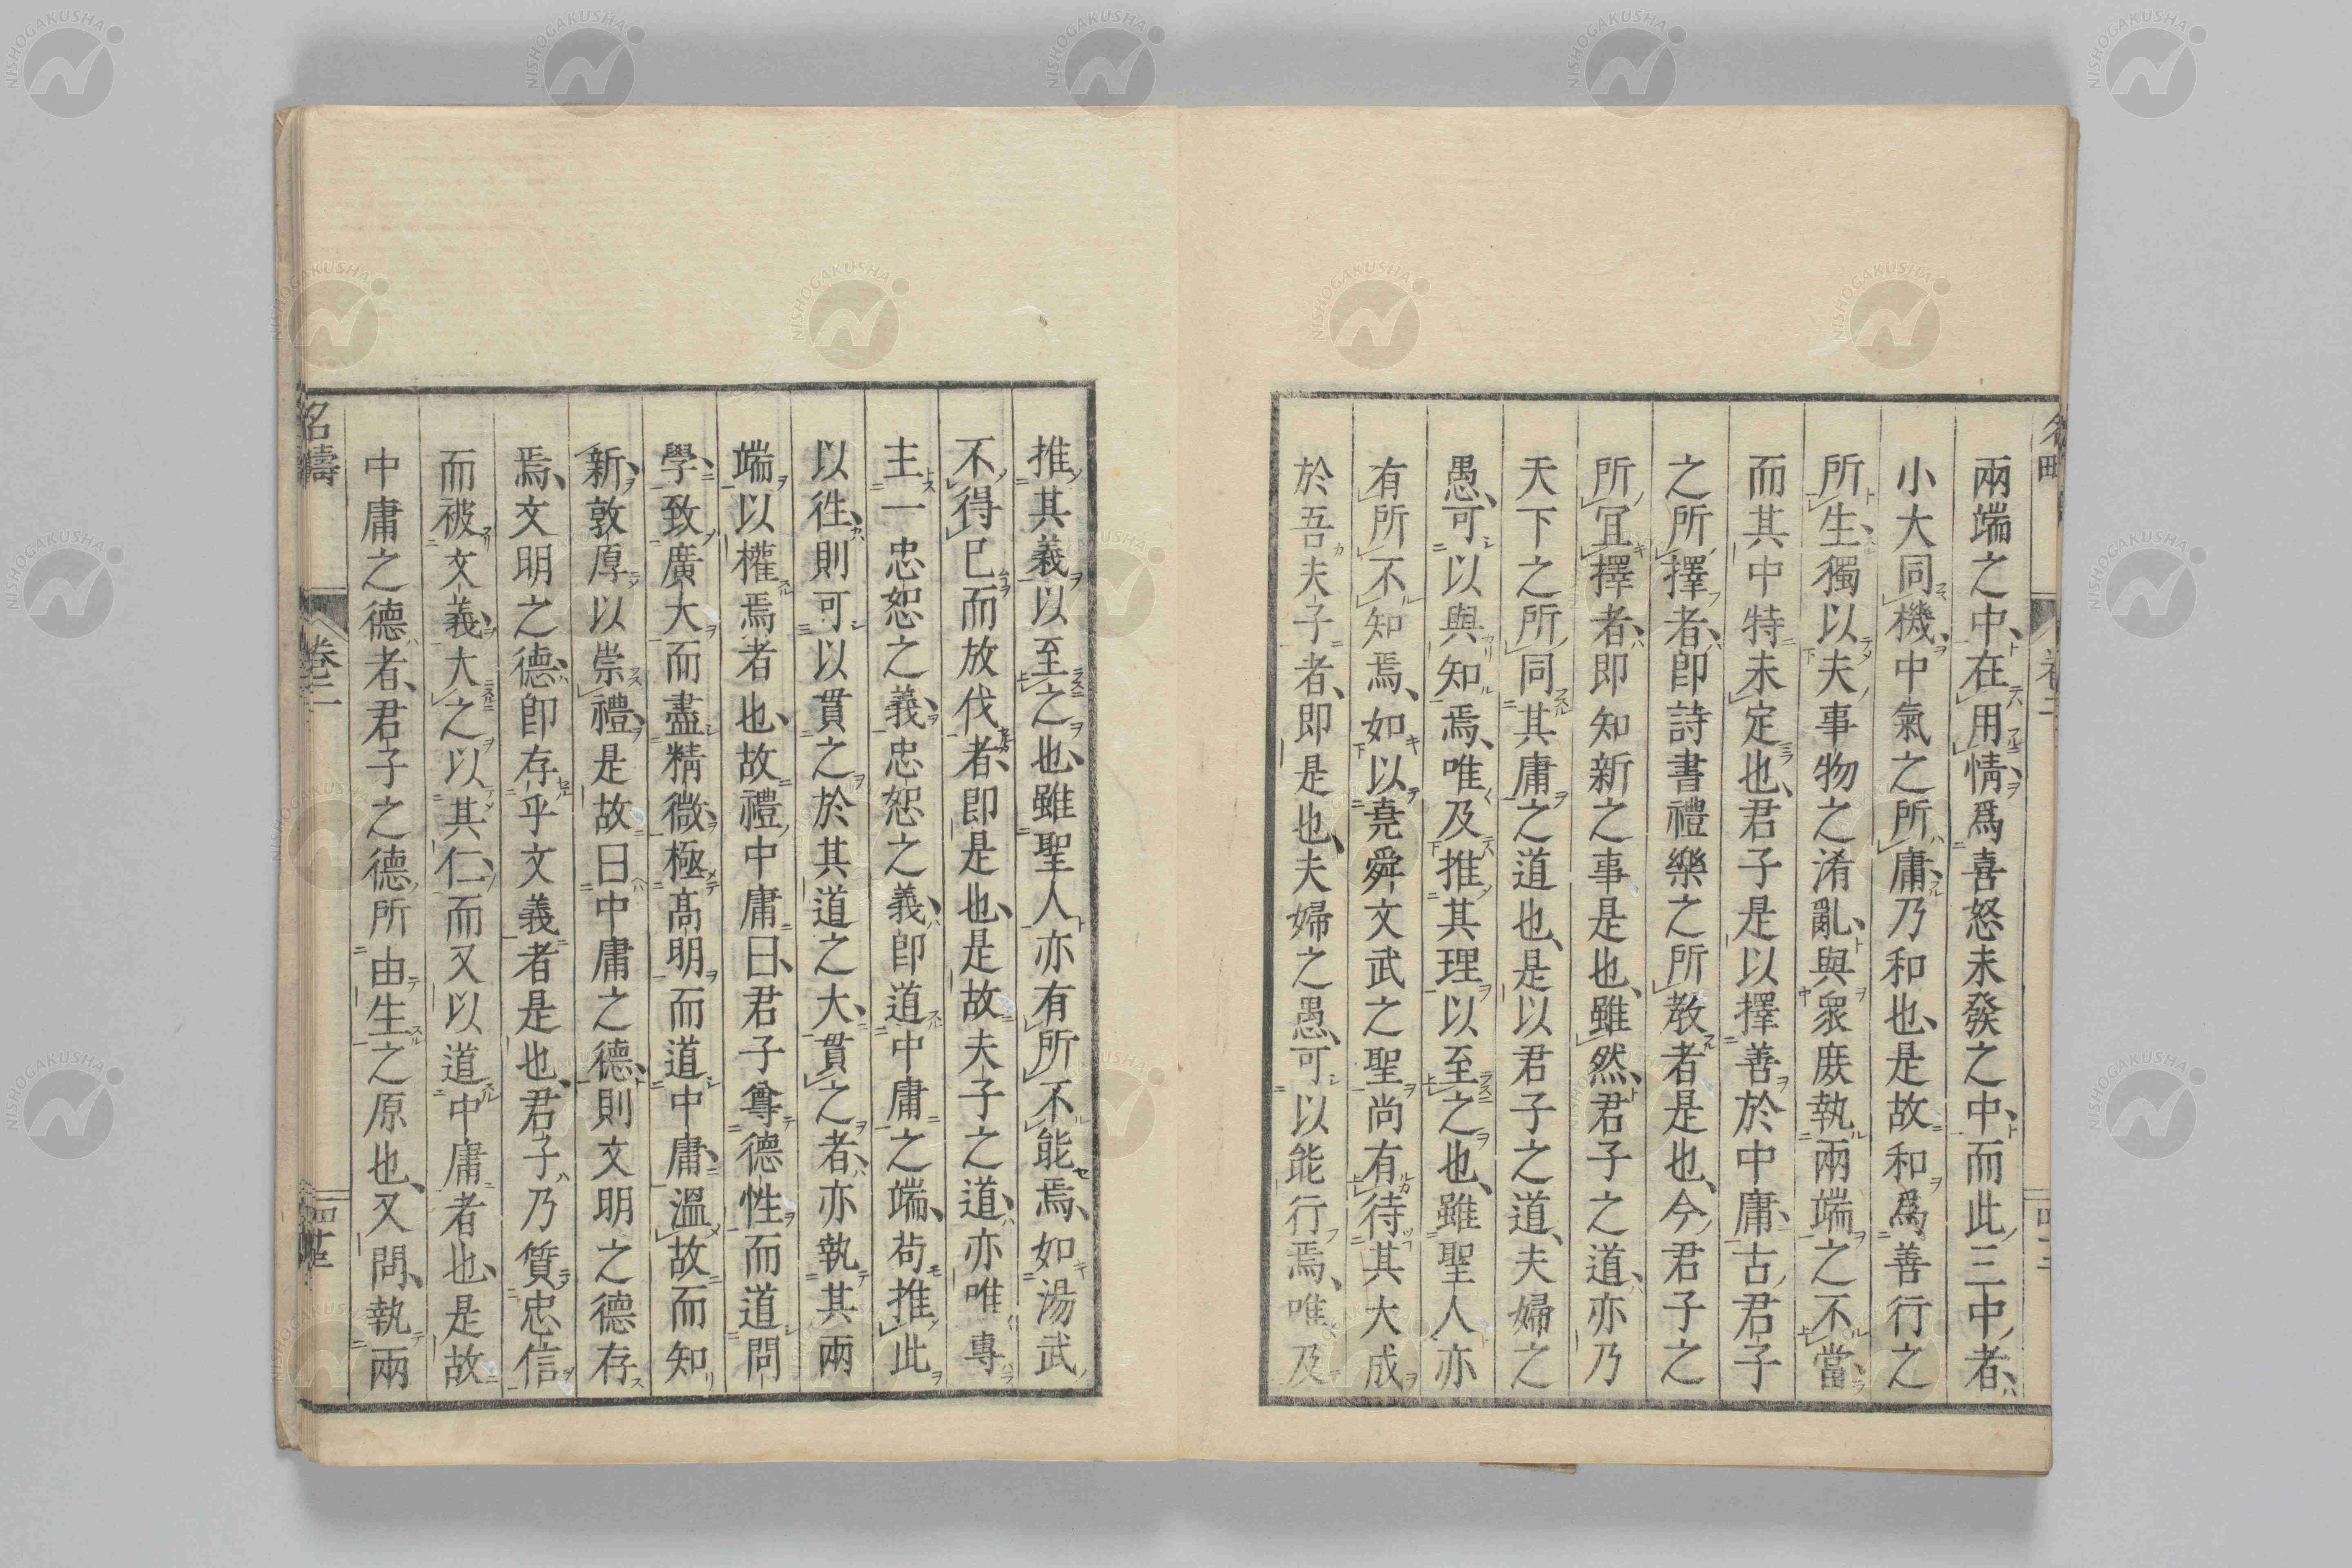 兩端之中、在用情、爲喜怒未發之中、而此三中者、
小大同機、中氣之所庸、乃和也、是故和爲善行之
所生、獨以夫事物之淆亂、與衆庶執兩端之不當、
而其中特未定也、君子是以擇善於中庸、古君子
之所擇者、卽詩書禮樂之所敎者是也、今君子之
所宜擇者、卽知新之事是也、雖然、君子之道、亦乃
天下之所同其庸之道也、是以君子之道、夫婦之
愚、可以與知焉、唯及推其理以至之也、雖聖人亦
有所不知焉、如以堯舜文武之聖尚有待其大成
於吾夫子者、卽是也、夫婦之愚、可以能行焉、唯及
推其義以至之也、雖聖人亦有所不能焉、如湯武
不得已而放伐者、卽是也、是故夫子之道、亦唯專
主一忠恕之義、忠恕之義、卽道中庸之端、苟推此
以往、則可以貫之於其道之大、貫之者、亦執其兩
端以權焉者也、故禮中庸曰、君子尊德性而道問
學、致廣大而盡精微、極高明而道中庸、溫故而知
新、敦厚以崇禮、是故曰中庸之德、則文明之德存
焉、文明之德、卽存乎文義者是也、君子乃質忠信
而被文義、大之以其仁、而又以道中庸者也、是故
中庸之德者、君子之德所由生之原也、又問、執兩
名疇
卷二
NISHOGAKUSHA